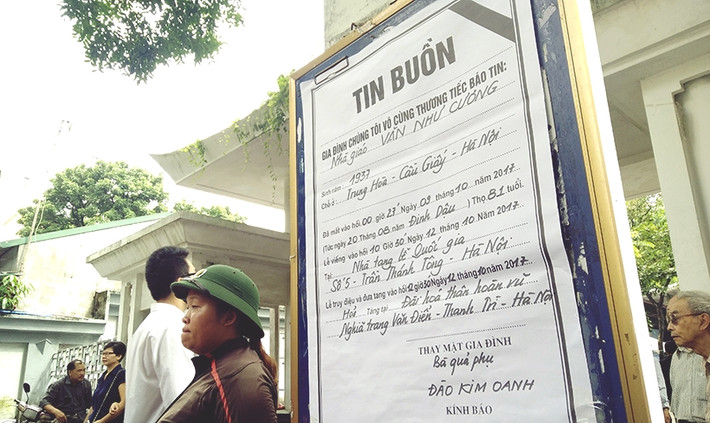 TIN BUỒN
GIA ĐÌNH CHÚNG TÔI VÔ CÙNG THƯƠNG TIẾC BÁO TIN:
Nhà giáo VĂN NHƯ CƯƠNG
Sinh năm: 1937
Chỗ ở: Trung Hoà - Cầu Giấy - Hà Nội
Đã mất vào hồi 00 giờ 27' Ngày 09 tháng 10 năm 2017
(Tức ngày 20 Tháng 08 năm Đinh Dậu) Thọ 81 tuổi.
Lễ viếng vào hồi 10 Giờ 30' Ngày 12 tháng 10 Năm 2017
Tại Nhà tang lễ Quốc gia
Số 5 - Trần Thánh Tông - Hà Nội
Lễ truy điệu và đưa tang vào hồi 12 giờ 30 Ngày 12 tháng 10 năm 2017
Hoả táng tại: Đài hoá thân hoàn vũ
Nghĩa trang Văn Điển - Thanh Trì - Hà Nội
THAY MẶT GIA ĐÌNH
Bà quả phụ
ĐÀO KIM OANH
KÍNH BÁO